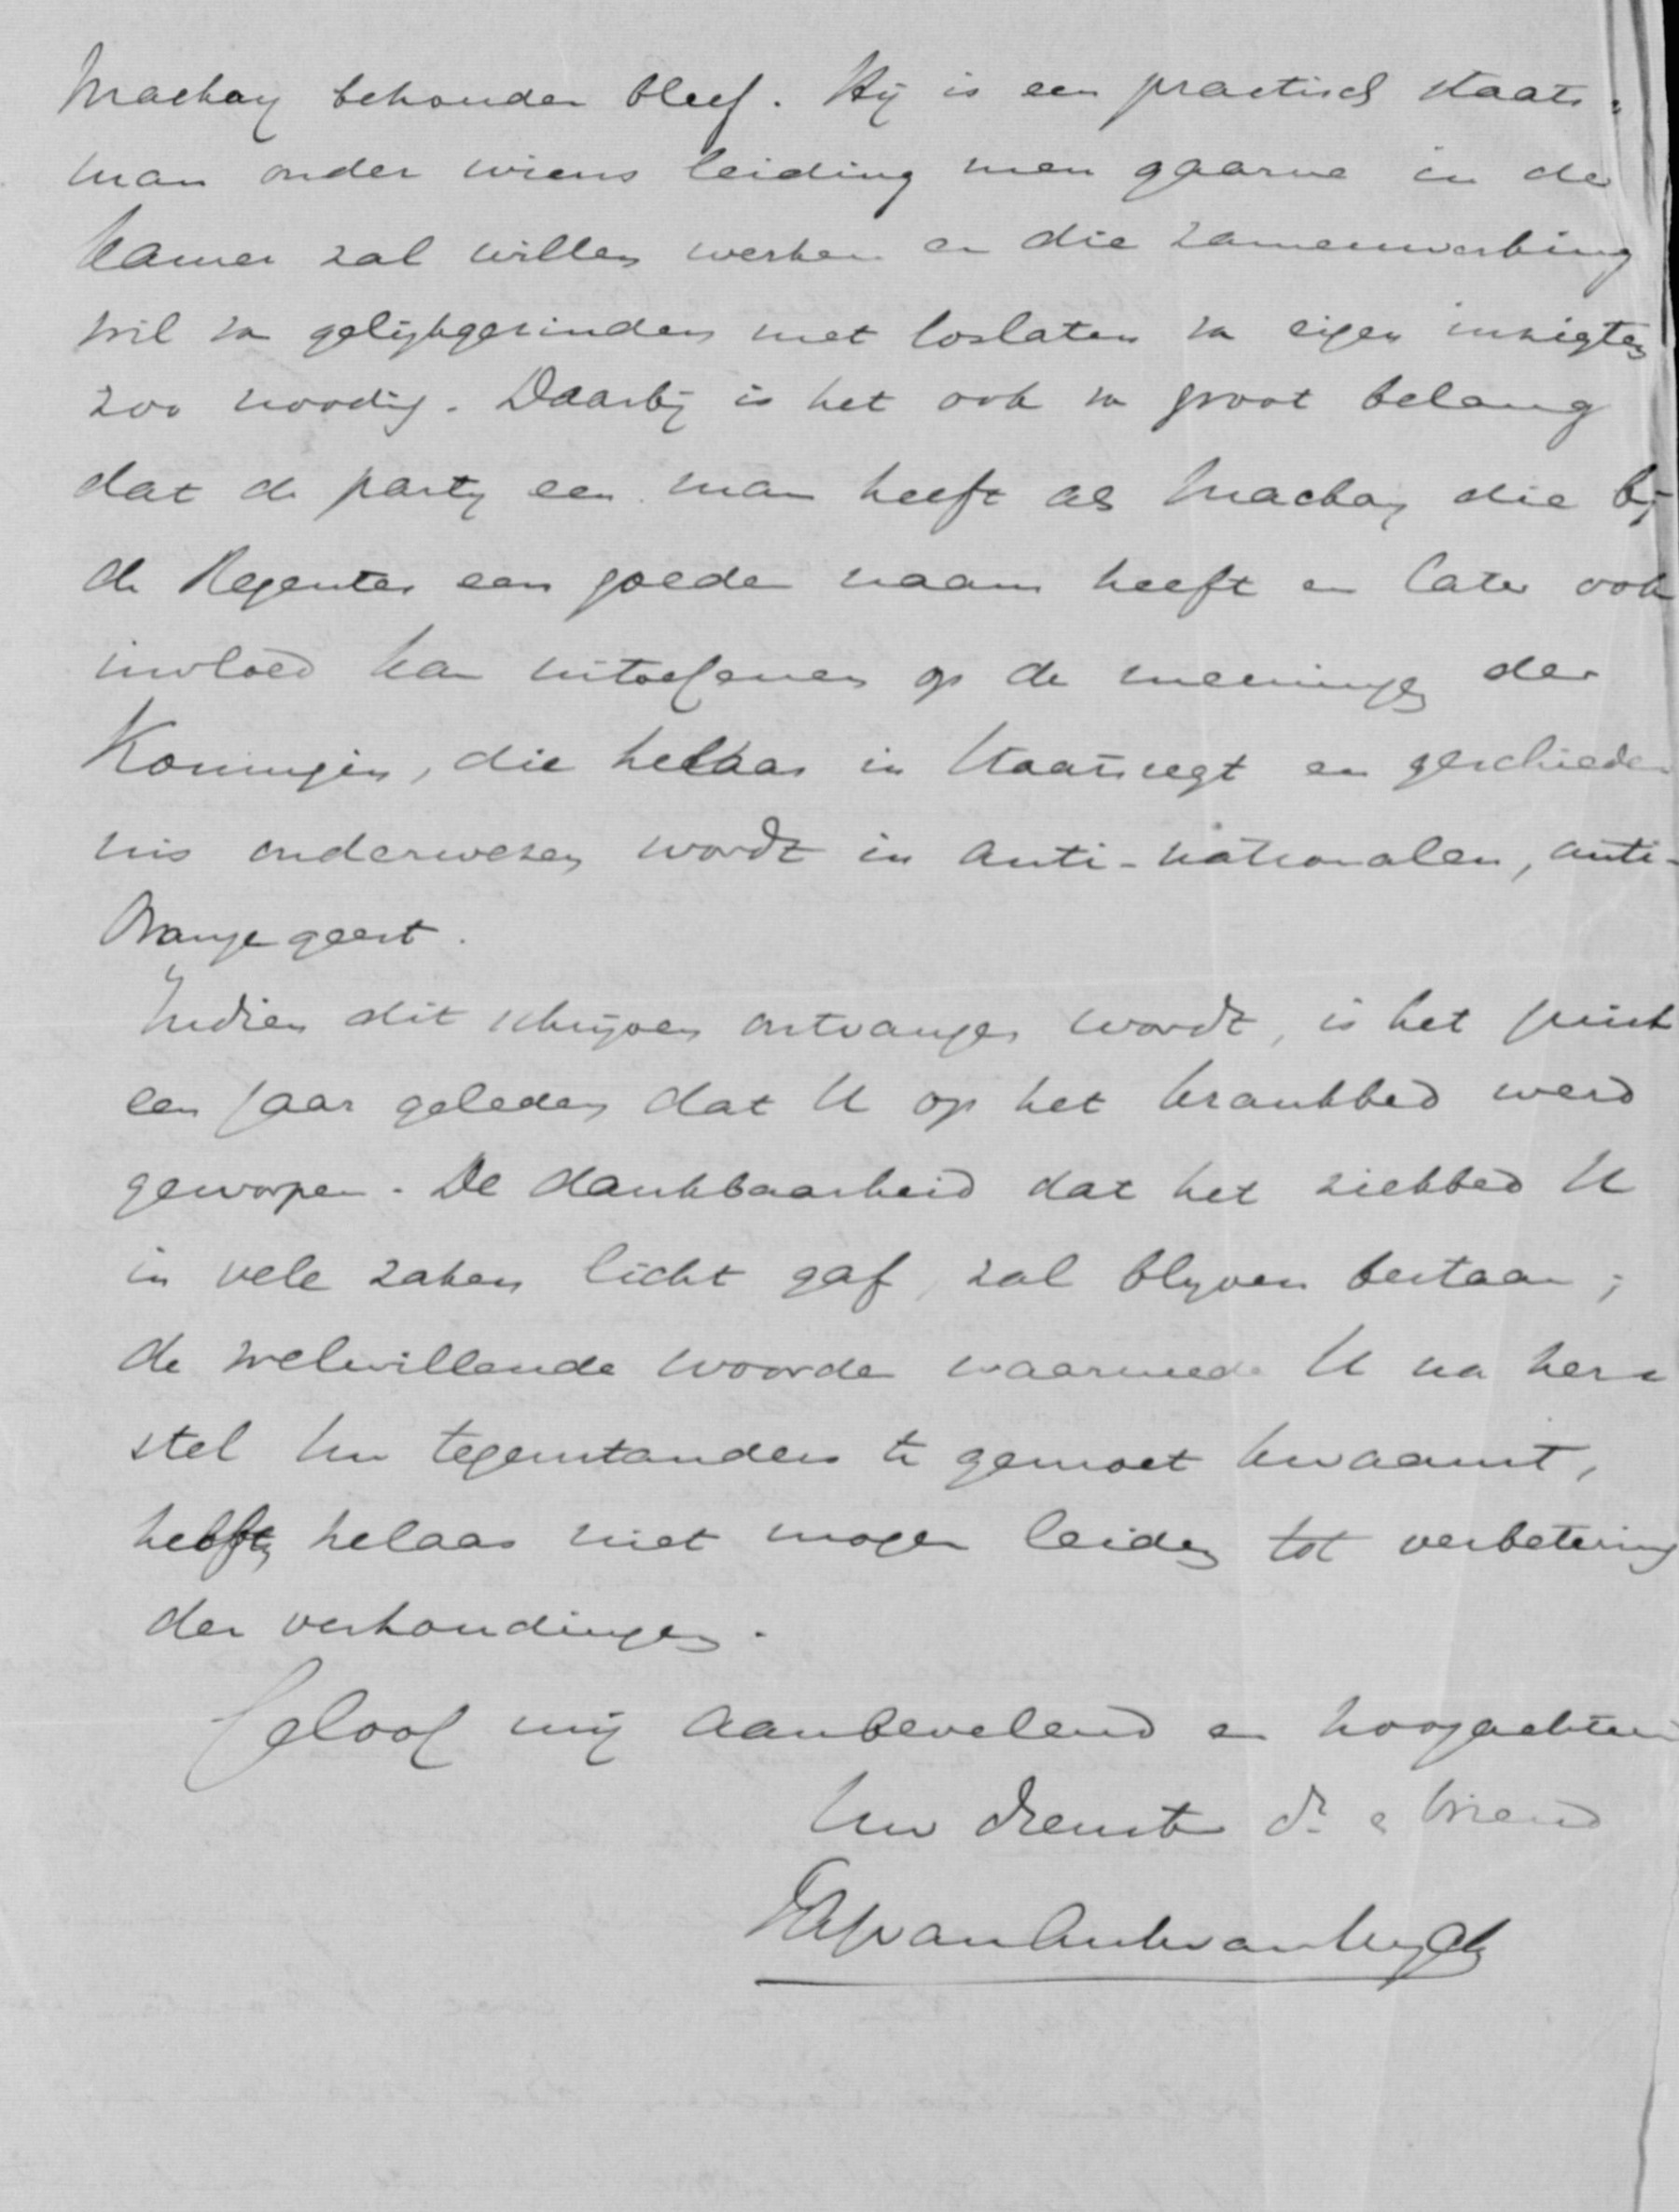 Mackay behouden bleef. Hij is een practisch staats-
man onder wiens leiding men gaarne in de
Kamer zal willen werken en die zamenwerking
wil van gelijkgezinden met loslaten van eigen inzigten
zoo noodig. Daarbij is het ook van groot belang
dat de partij een man heeft als Mackay die bij
de Regentes een goeden naam heeft en later ook
invloed kan uitoefenen op de meeningen der
Koningin, die helaas in Staatsregt en geschiede-
nis onderwezen wordt in anti-nationalen, anti-
Oranjegeest.
Indien dit schrijven ontvangen wordt, is het juist
een jaar geleden dat U op het krankbed werd
geworpen. De dankbaarheid dat het ziekbed U
in vele zaken licht gaf, zal blijven bestaan;
de welwillende woorden waarmede U na her-
stel Uw tegenstanders te gemoet kwaamt,
helaas niet mogen leiden tot verbetering
der verhoudingen.
Geloof mij aanbevelend en hoogachtend
Uw dienstw dr en vriend